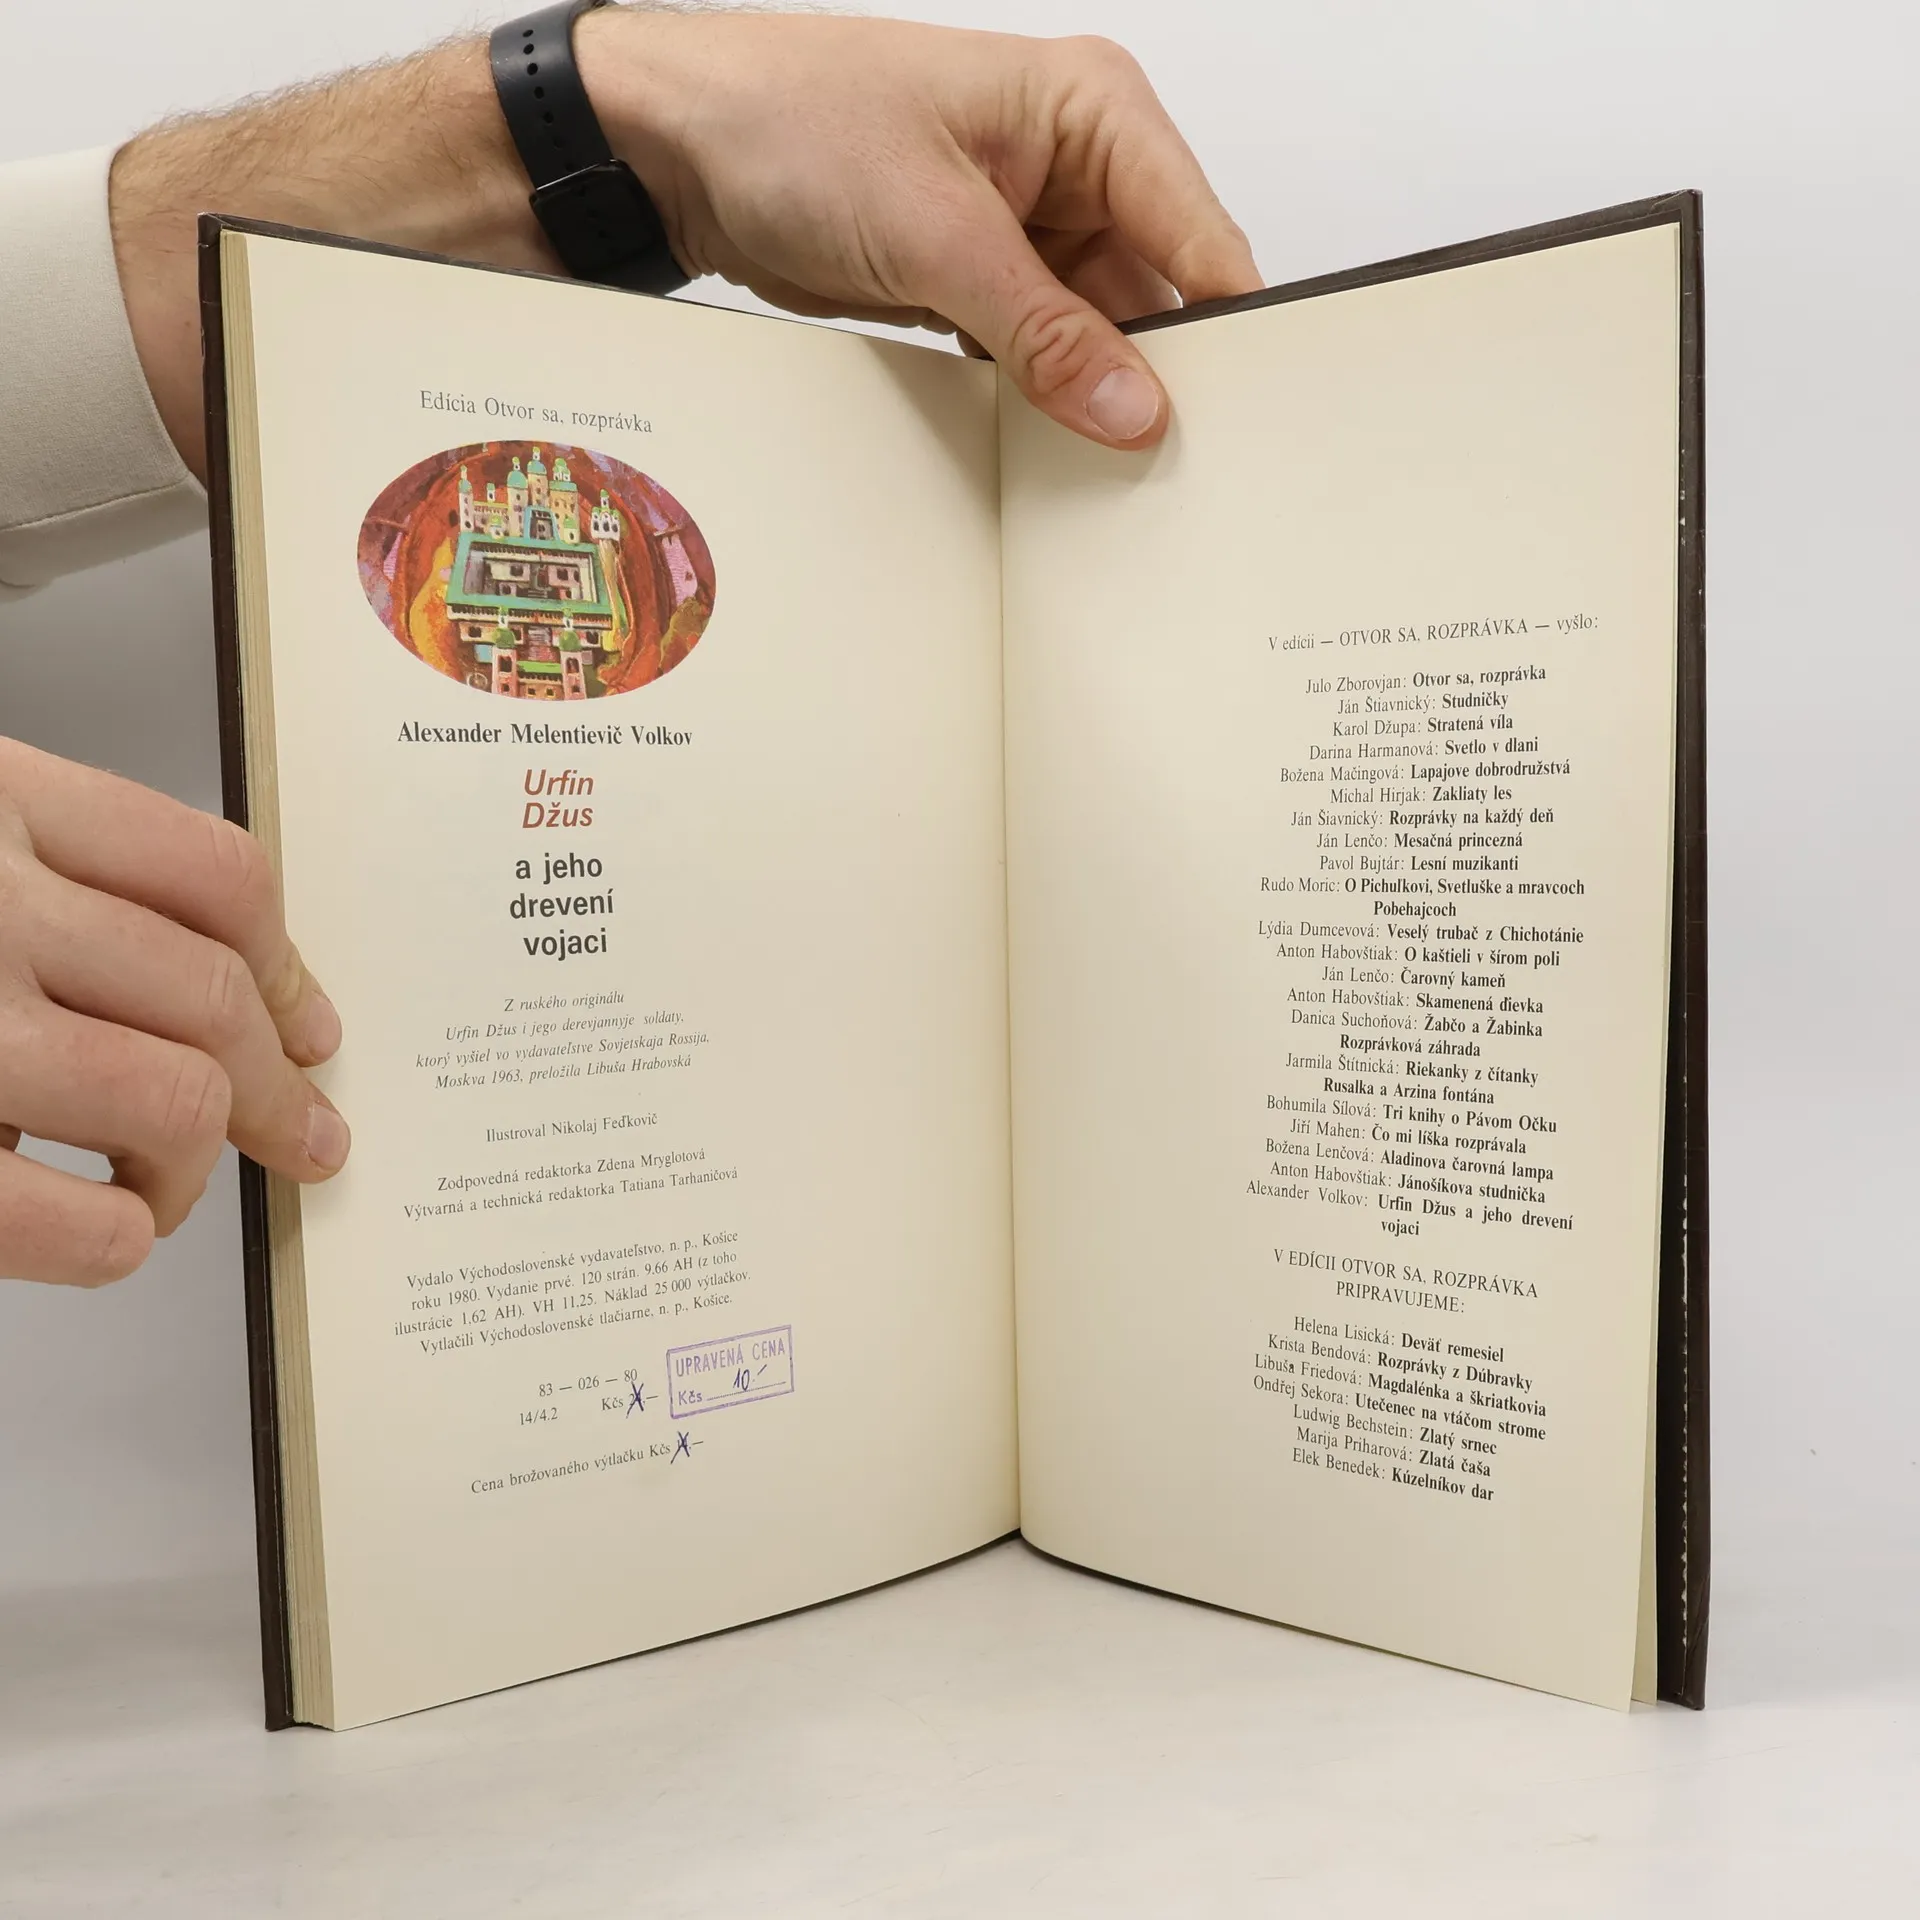 Edícia Otvor sa, rozprávka
Alexander Melentievič Volkov
Urfin
Džus
a jeho
drevení
vojaci
Z ruského originálu
Urfin Džus i jego derevjannyje soldaty,
ktorý vyšiel vo vydavateľstve Sovjetskaja Rossija,
Moskva 1963, preložila Libuša Hrabovská
Ilustroval Nikolaj Feďkovič
Zodpovedná redaktorka Zdena Mryglotová
Výtvarná a technická redaktorka Tatiana Tarhaničová
Vydalo Východoslovenské vydavateľstvo, n. p., Košice
roku 1980. Vydanie prvé. 120 strán. 9.66 AH (z toho
ilustrácie 1,62 AH). VH 11,25. Náklad 25 000 výtlačkov.
Vytlačili Východoslovenské tlačiarne, n. p., Košice.
83 — 026 — 80
14/4.2 Kčs
UPRAVENÁ CENA
Kčs 10.-
Cena brožovaného výtlačku Kčs
V edícii — OTVOR SA, ROZPRÁVKA — vyšlo:
Julo Zborovjan: Otvor sa, rozprávka
Ján Štiavnický: Studničky
Karol Džupa: Stratená víla
Darina Harmanová: Svetlo v dlani
Božena Mačingová: Lapajove dobrodružstvá
Michal Hirjak: Zakliaty les
Ján Šiavnický: Rozprávky na každý deň
Ján Lenčo: Mesačná princezná
Pavol Bujtár: Lesní muzikanti
Rudo Moric: O Pichuľkovi, Svetluške a mravcoch
Pobehajcoch
Lýdia Dumcevová: Veselý trubač z Chichotánie
Anton Habovštiak: O kaštieli v šírom poli
Ján Lenčo: Čarovný kameň
Anton Habovštiak: Skamenená dievka
Danica Suchoňová: Žabčo a Žabinka
Rozprávková záhrada
Jarmila Štítnická: Riekanky z čítanky
Rusalka a Arzina fontána
Bohumila Sílová: Tri knihy o Pávom Očku
Jiří Mahen: Čo mi líška rozprávala
Božena Lenčová: Aladinova čarovná lampa
Anton Habovštiak: Jánošíkova studnička
Alexander Volkov: Urfin Džus a jeho drevení
vojaci
V EDÍCII OTVOR SA, ROZPRÁVKA
PRIPRAVUJEME:
Helena Lisická: Deväť remesiel
Krista Bendová: Rozprávky z Dúbravky
Libuša Friedová: Magdalénka a škriatkovia
Ondřej Sekora: Utečenec na vtáčom strome
Ludwig Bechstein: Zlatý srnec
Marija Priharová: Zlatá čaša
Elek Benedek: Kúzelníkov dar